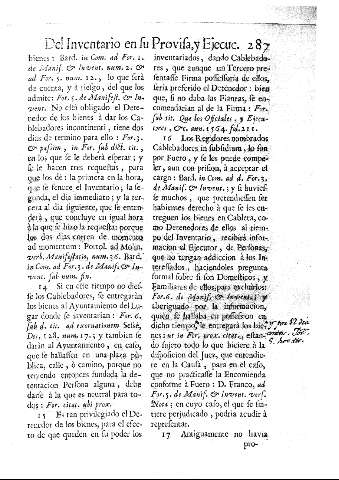 Del Inventario en su Provisa, y Ejecuc. 287
bienes : Bard. in Com. ad For. 2.
de Manif. & Invent. num. 2. &
ad For. 5. num. 12., lo que serà
de cuenta, y riesgo, del que los
admite: For. 5. de Manifest. & In-
vent. No està obligado el Dete-
nedor de los bienes à dar los Ca-
blebadores incontinenti, tiene dos
dias de termino para ello : For. 3.
& passim, in For. sub dict. tit.,
en los que se le deberà esperar; y
se le hacen tres requestas, para
que los dè : la primera en la hora,
que se fenece el Inventario, la se-
gunda, el dia immediato; y la ter-
cera al dia siguiente, que se enten-
derà, que concluye en igual hora
à la que se hizo la requesta; porque
los dos dias corren de momento
ad momentum : Portol. ad Molin.
verb. Manifestatio, num. 36. Bard.
in Com. ad For. 3. de Manif. & In-
vent. sub num. fin.
14 Si en este tiempo no dies-
se los Cablebadores, se entregaràn
los bienes al Ayuntamiento del Lu-
gar donde se inventarian : For. 6.
sub d. tit. ad exornationem Sesse,
Dec. 128. num. 17., y tambien se
daràn al Ayuntamiento, en caso,
que se hallassen en una plaza pù-
blica, calle, ò camino, porque no
teniendo entonces fundada la de-
tentacion Persona alguna, debe
darse à la que es neutral para to-
dos : For. citat. ubi prox.
15 Es tan privilegiado el De-
tenedor de los bienes, para el efec-
to de que queden en su poder los
inventariados, dando Cablebado-
res, que aunque un Tercero pre-
sentasse Firma possessoria de ellos,
seria preferido el Detenedor : bien
que, si no daba las Fianzas, se en-
comendarian al de la Firma : For.
sub tit. Que los Oficiales, y Ejecu-
tores, &c. ann. 1564. fol. 211.
16 Los Regidores nombrados
Cablebadores in subsidium, lo son
por Fuero, y se les puede compe-
ler, aun con prision, à aceptar el
cargo : Bard. in Com. ad d. For. 3.
de Manif. & Invent. ; y si huvies-
se muchos, que pretendiessen ser
habientes derecho à que se les en-
treguen los bienes en Cableta, co-
mo Detenedores de ellos al tiem-
po del Inventario, recibirà infor-
macion el Ejecutor, de Personas,
que no tengan addiccion à los In-
teressados, haciendoles pregunta
formal sobre si son Domesticos, y
Familiares de ellos, para excluirlos:
For. 6. de Manif. & Invent. ; y
averiguado por la informacion,
quien se hallaba en possession en
dicho tiempo, se entregarà los bie-
nes : ut in For. prox. citat., estan-
do sujeto todo lo que hiciere à la
disposicion del Juez, que entendie-
re en la Causa, para en el caso,
que no practicasse la Encomienda
conforme à Fuero : D. Franco, ad
For. 5. de Manif. & Invent. vers.
Nota : en cuyo caso, el que se sin-
tiere perjudicado, podria acudir à
representar.
17 Antiguamente no havia
pro-